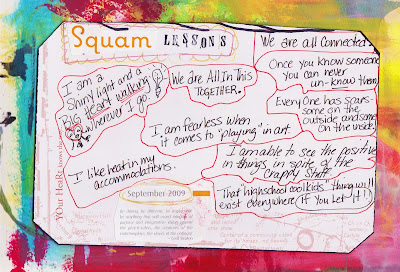 Squam LESSONS
We are all connected.
Once you know someone
you can never
un-know them.
I am a
Shiny light and a
BIG Heart walking
Wherever I go.
We are All In This
TOGETHER.
EveryOne has scars-
some on the
outside and some
on the inside.
I am fearless when
it comes to "playing" in art.
I am able to see the positive
in things in spite of the
Crappy Stuff.
I like heat in my
accommodations.
That highschool "cool kids" thing will
exist everywhere (if You Let It!)
September 2009